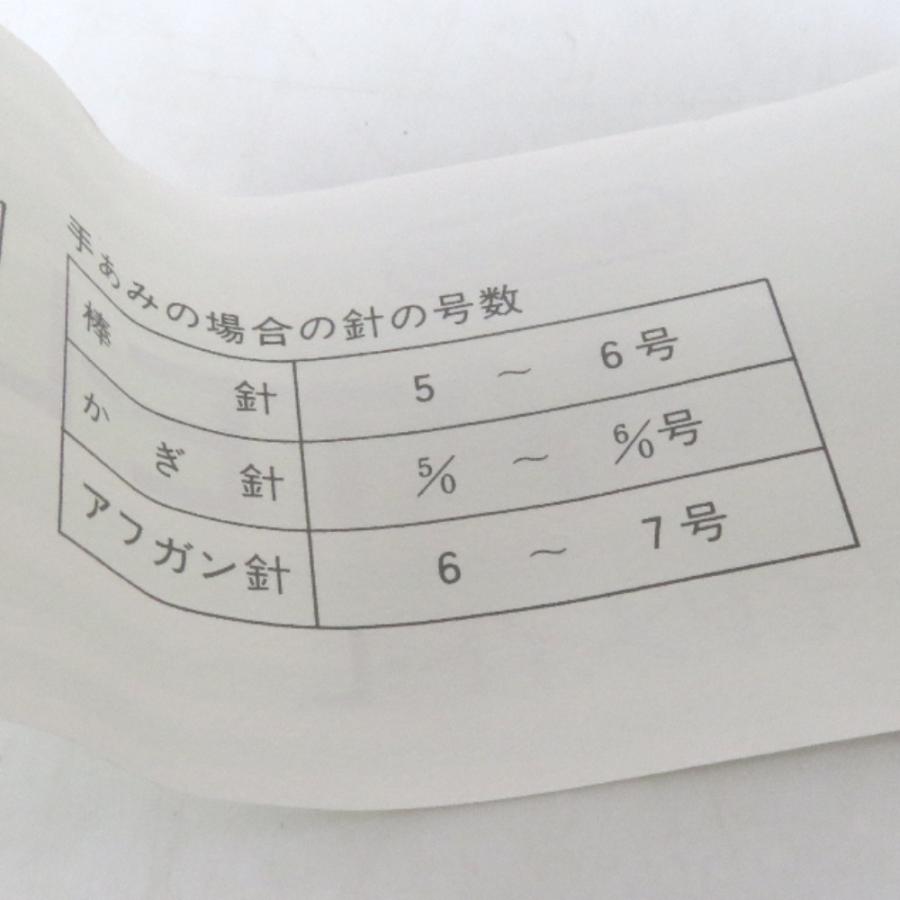 手あみの場合の針の号数
棒針 5 ～ 6号
かぎ針 5/0 ～ 6/0号
アフガン針 6 ～ 7号